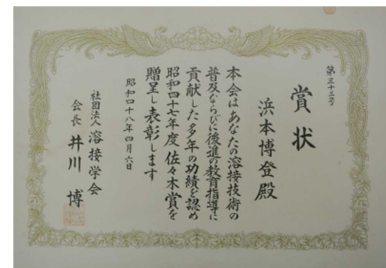 第三十三号
賞状
浜本博登殿
本会はあなたの溶接技術の
普及ならびに後進の教育指導に
貢献した多年の功績を認め
昭和四十七年度佐々木賞を
贈呈し表彰します
昭和四十八年四月六日
社団法人 溶接学会
会長 井川 博